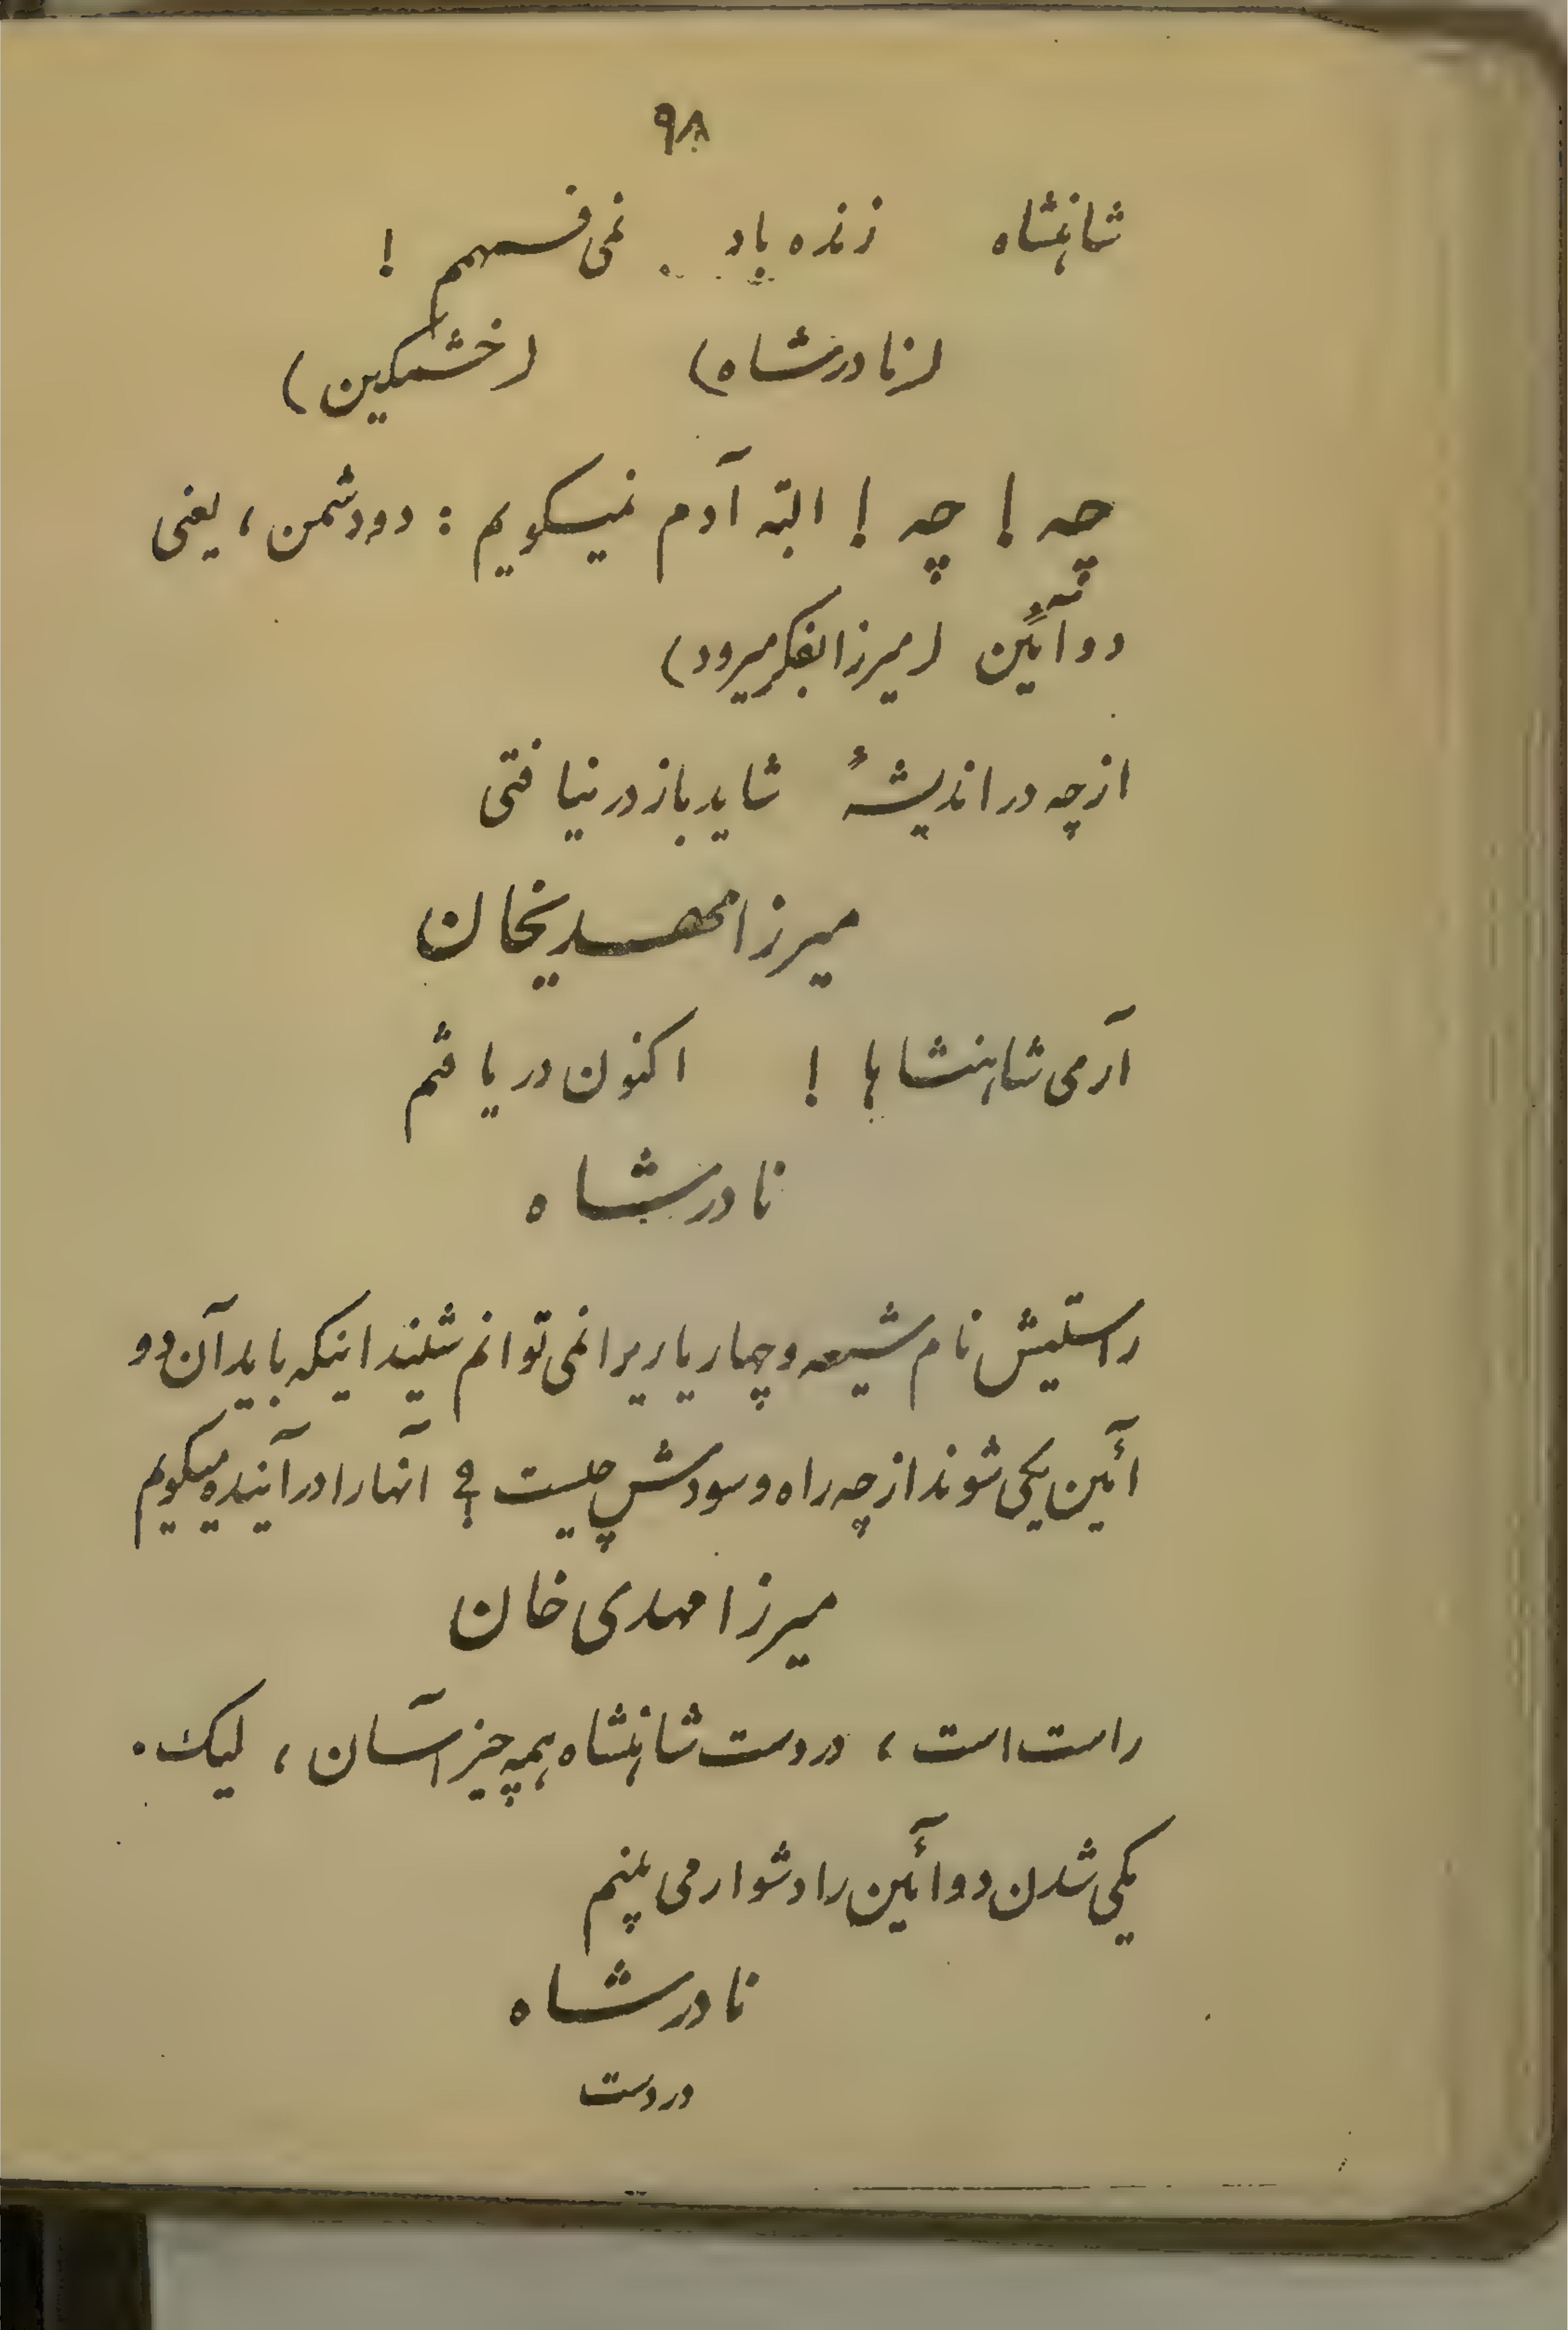 ۹۸
شاهنشاه زنده باد . نمی فهمم !
(نادرشاه) (خشمگین)
چه ! چه ! البته آدم نمیگویم : دو دشمن ، یعنی
دو آئین (میرزا بفکر میرود)
از چه در اندیشهٔ شاید باز در نیافتی
میرزا مهدیخان
آرمی شاهنشاها ! اکنون دریافتم
نادرشاه
راستیش نام شیعه و چهار یاریرا نمی توانم شنید اینکه باید آن دو
آئین یکی شوند از چه راه و سودش چیست ؟ آنها را در آینده میگویم
میرزا مهدی خان
راست است ، در دست شاهنشاه همه چیز آسان ، لیک .
یکی شدن دو آئین را دشوار می بینم
نادرشاه
در دست